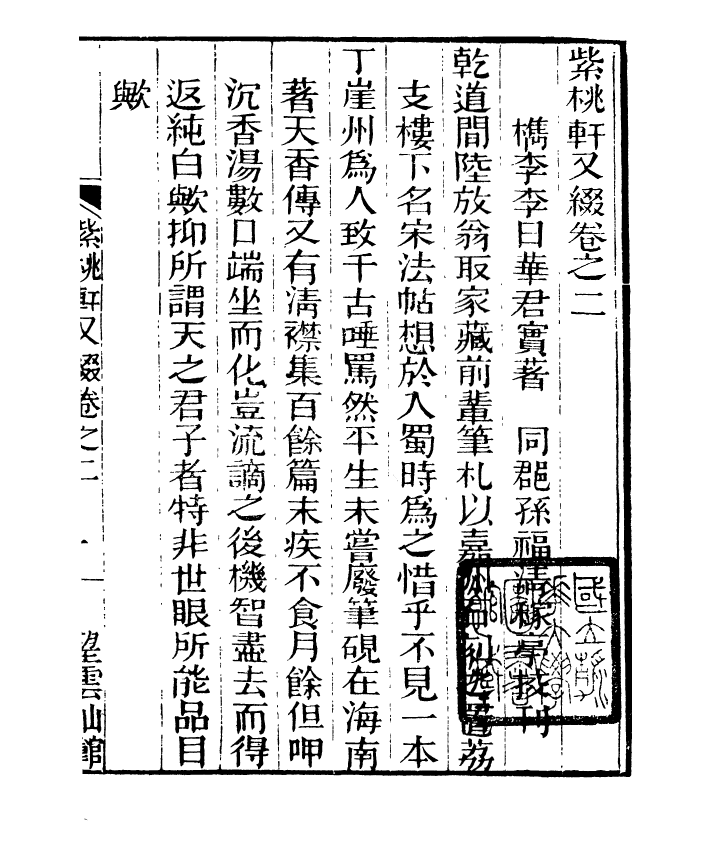 紫桃軒又綴卷之二
檇李李日華君實著　同郡孫福清稼亭校刊
乾道間陸放翁取家藏前輩筆札以嘉州石刻置荔
支樓下名宋法帖想於入蜀時爲之惜乎不見一本
丁崖州爲人致千古唾罵然平生未嘗廢筆硯在海南
著天香傳又有淸襟集百餘篇末疾不食月餘但呷
沉香湯數口端坐而化豈流謫之後機智盡去而得
返純白歟抑所謂天之君子者特非世眼所能品目
歟
紫桃軒又綴卷之二　一　望雲仙館
國立